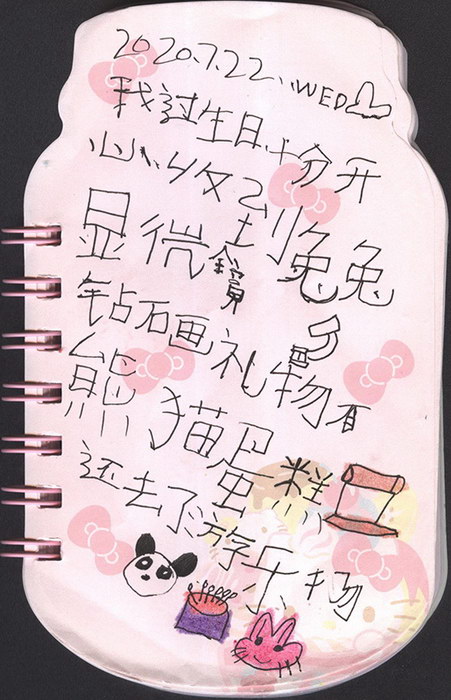 2020.7.22. WED
我过生日,十分开
心,收到兔兔
显微
钻石画礼物多有
熊猫蛋糕
还去了游乐场